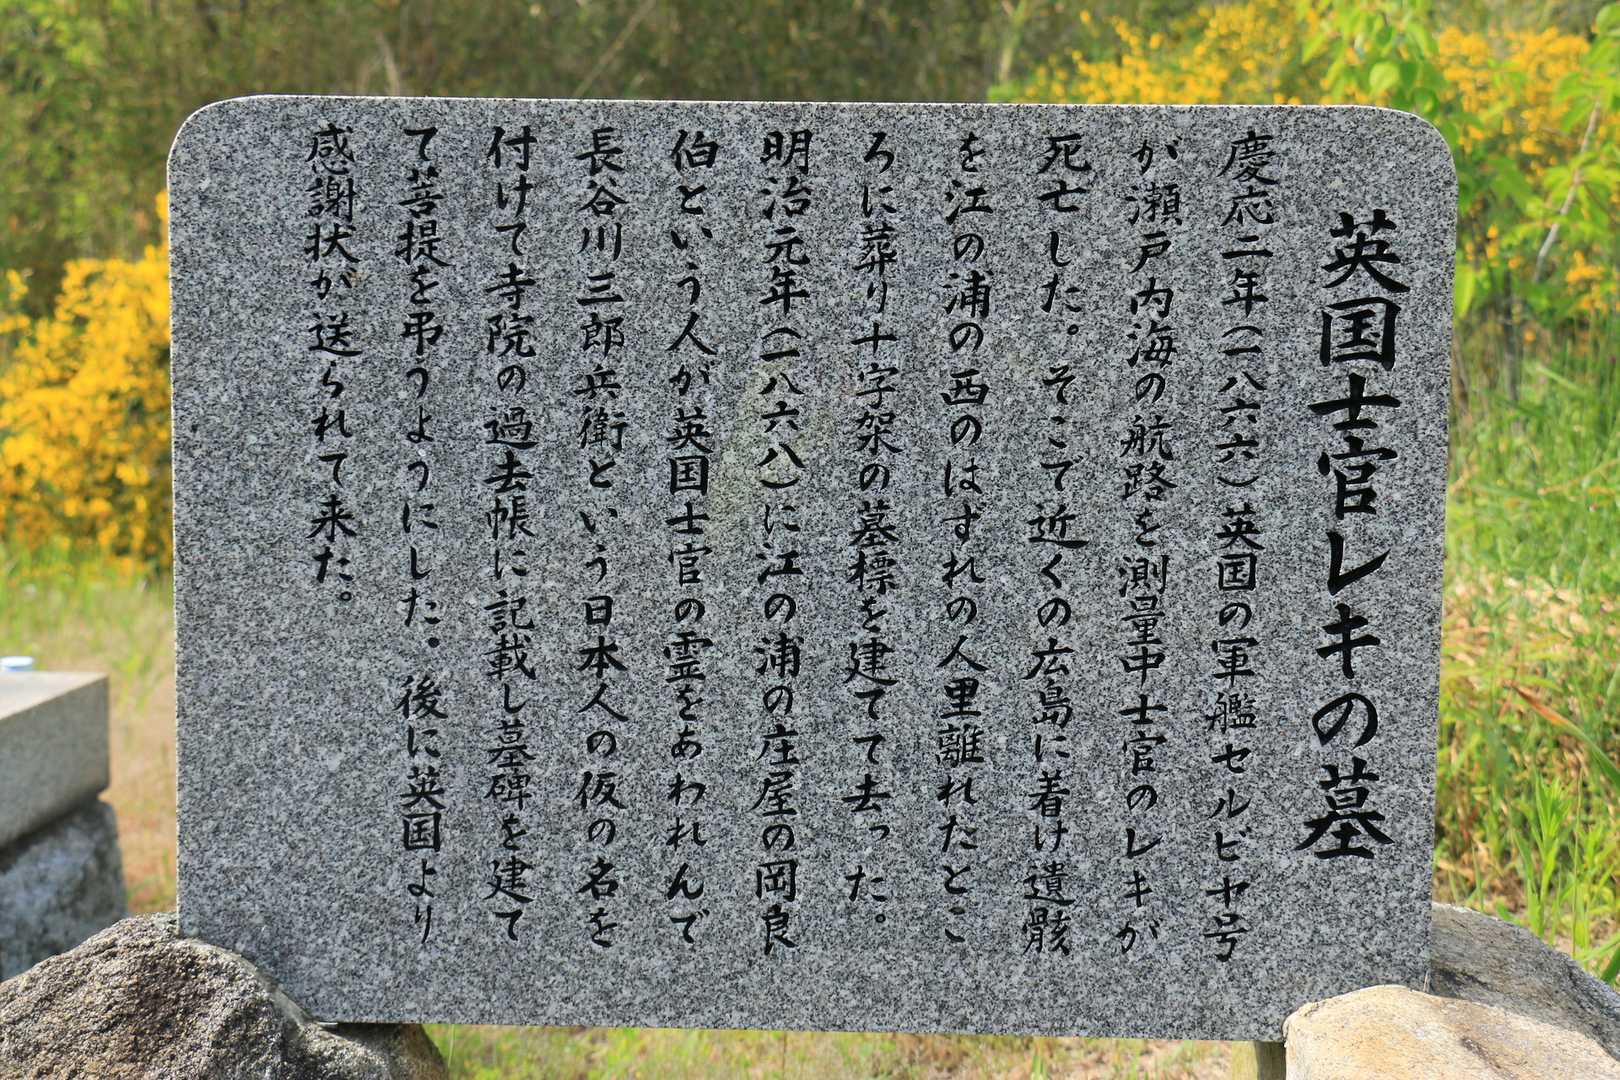 英国士官レキの墓
慶応二年(一八六六)英国の軍艦セルビヤ号
が瀬戸内海の航路を測量中士官のレキが
死亡した。そこで近くの広島に着け遺骸
を江の浦の西のはずれの人里離れたとこ
ろに葬り十字架の墓標を建てて去った。
明治元年(一八六八)に江の浦の庄屋の岡良
伯という人が英国士官の霊をあわれんで
長谷川三郎兵衛という日本人の仮の名を
付けて寺院の過去帳に記載し墓碑を建て
て菩提を弔うようにした。後に英国より
感謝状が送られて来た。